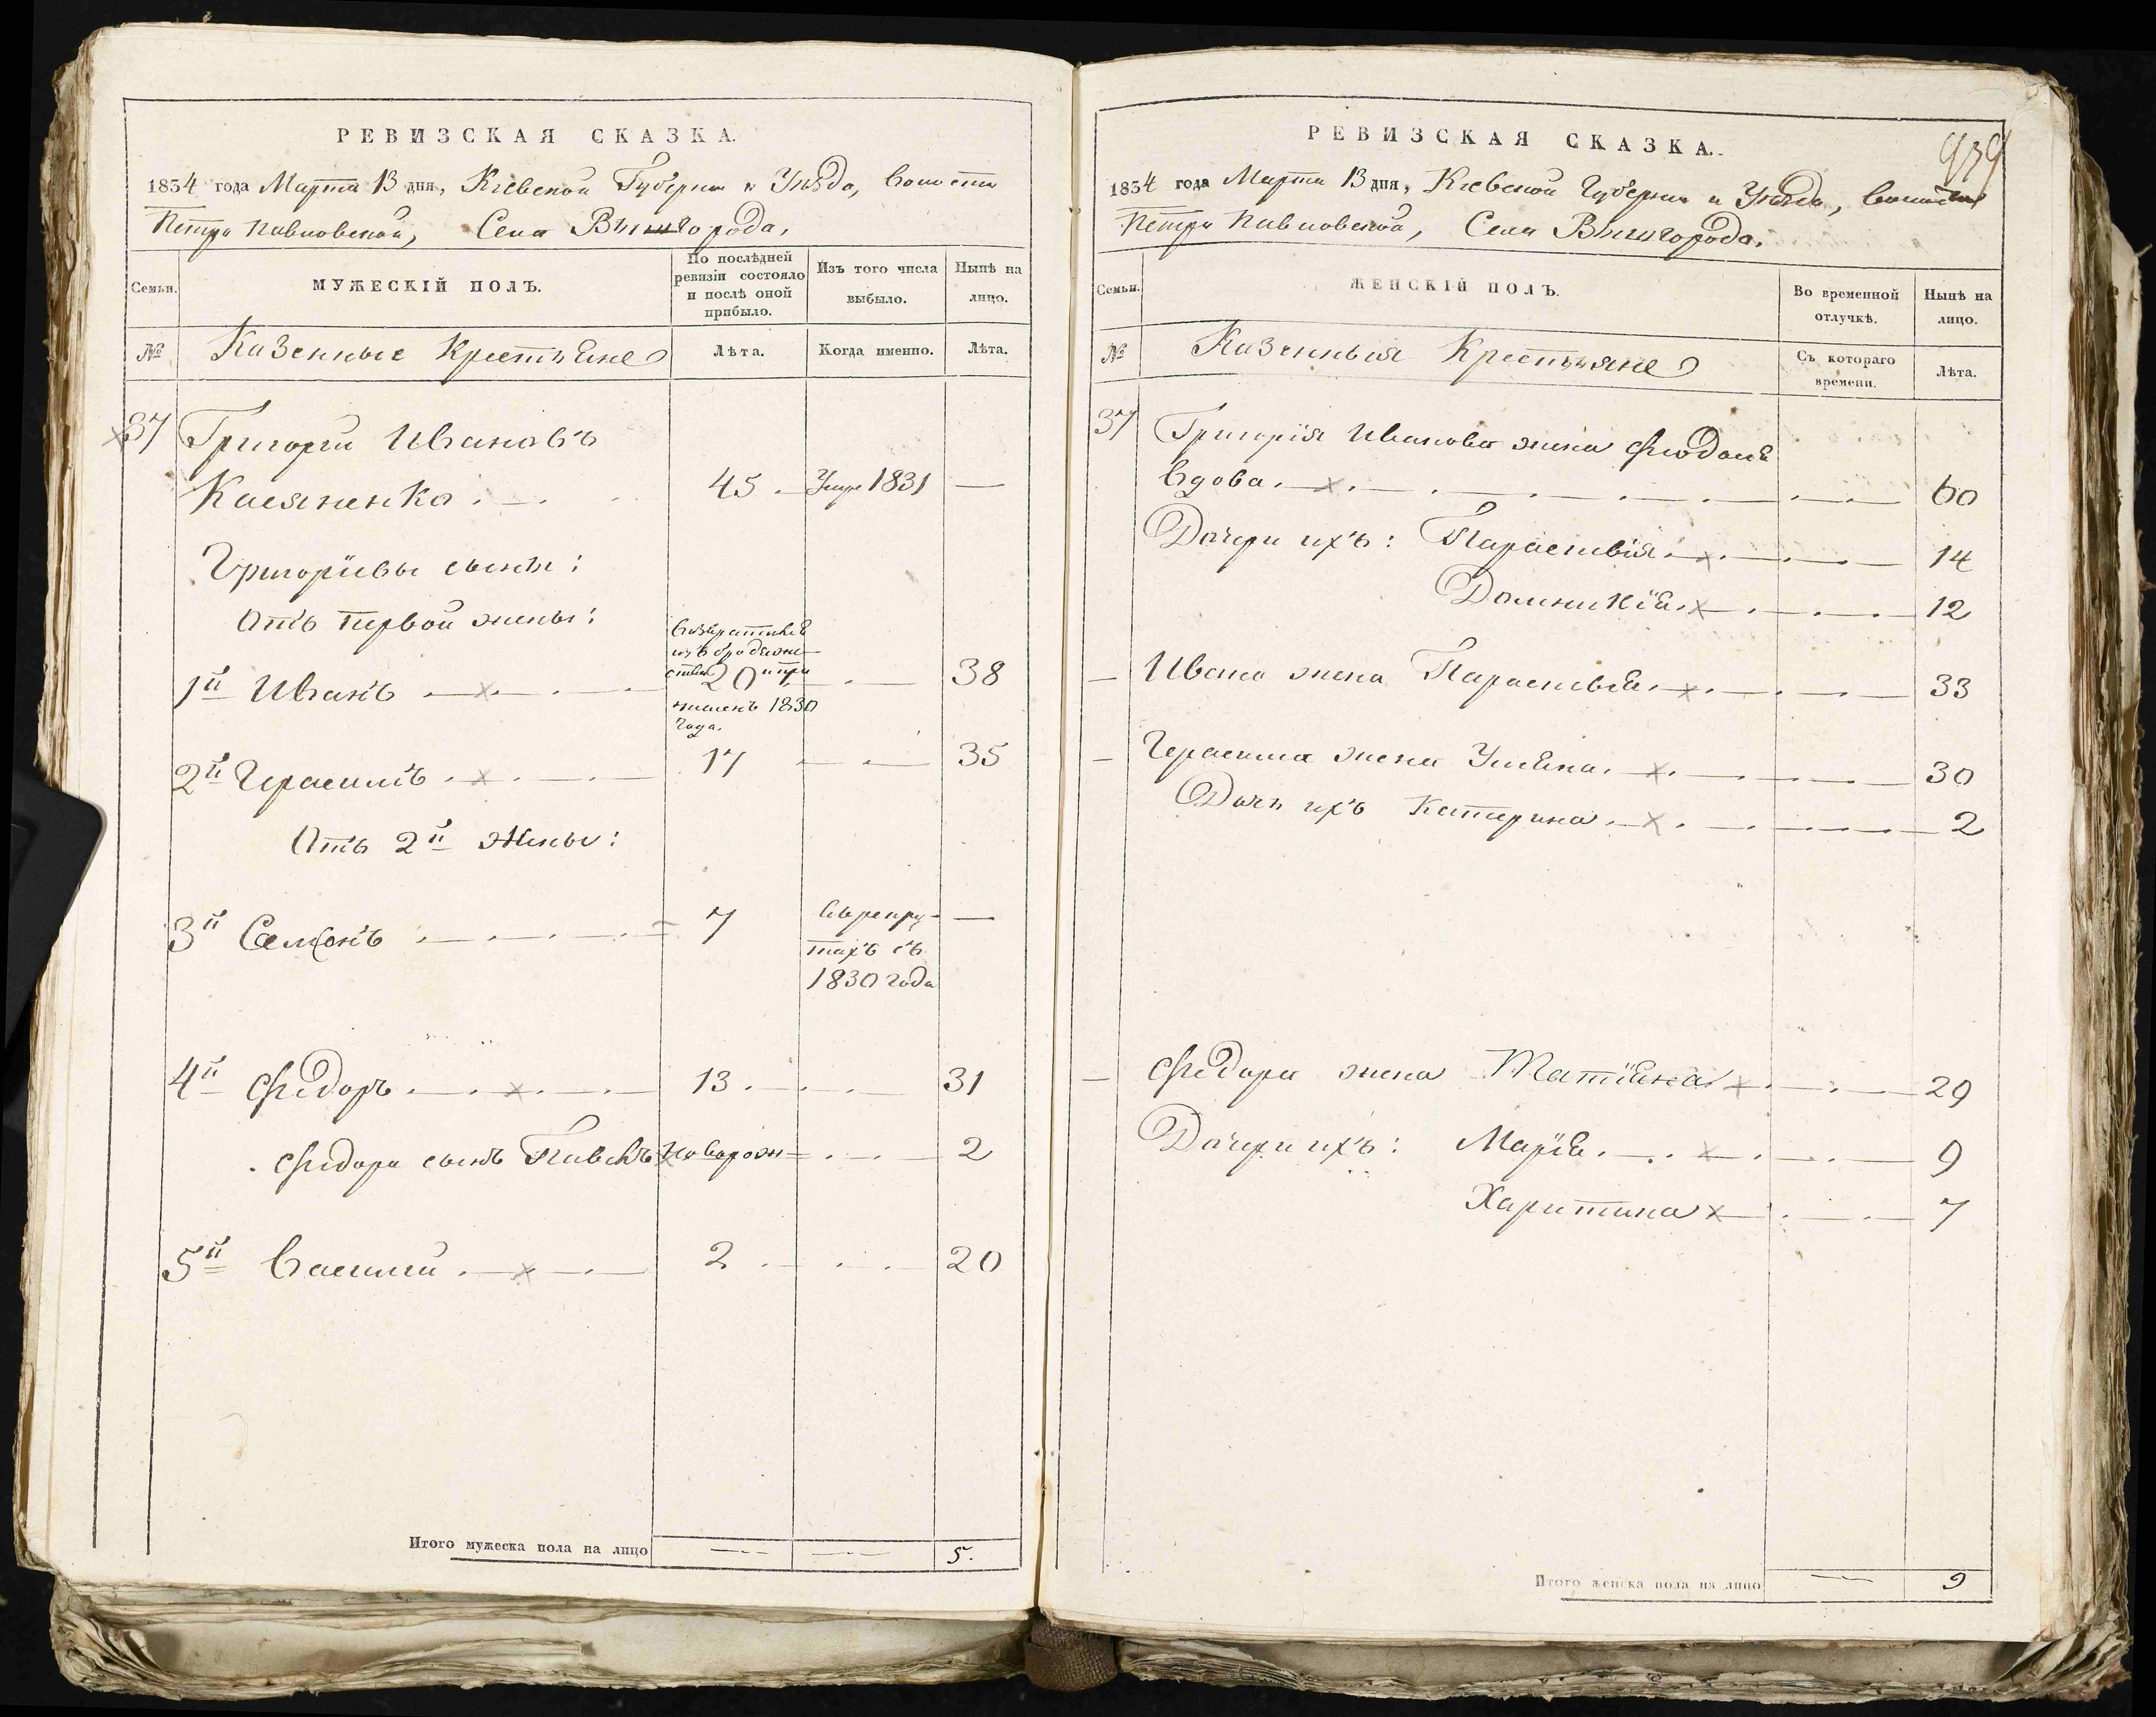 РЕВИЗСКАЯ СКАЗКА.
1834 года Марта 13 дня, Кіевской Губерніи и Уѣзда, волости
Петро Павловской, Села Вышгорода,
Семьи.
МУЖЕСКІЙ ПОЛЪ.
По послѣдней ревизіи состояло и послѣ оной прибыло.
Изъ того числа выбыло.
Нынѣ на лицо.
№
Казенные Крестьяне
Лѣта.
Когда именно.
Лѣта.
37 Григорій Ивановъ
Касяненко 45 Умре 1831 —
Григоріевы сыны:
Отъ первой жены:
возвратився
изъ бродяже-
ства
1й Иванъ 20 и при 38
численъ 1830
года.
2й Герасимъ 17 35
Отъ 2й жены:
3й Семенъ 7 Въ рекру- —
тахъ съ
1830 года
4й Федоръ 13 31
Федора сынъ Павелъ новорож 2
5й Василій 2 20
Итого мужеска пола на лицо 5.
РЕВИЗСКАЯ СКАЗКА.
939
1834 года Марта 13 дня, Кіевской Губерніи и Уѣзда, волости
Петро Павловской, Села Вышгорода.
Семьи.
ЖЕНСКІЙ ПОЛЪ.
Во временной отлучкѣ.
Нынѣ на лицо.
№
Казенныя Крестьяне
Съ котораго времени.
Лѣта.
37 Григорія Иванова жена Феодося
вдова 60
Дочери ихъ: Параскевія 14
Домникія 12
— Ивана жена Параскевія 33
— Герасима жена Уляна 30
Дочь ихъ Катерина 2
— Федора жена Татіяна 29
Дочери ихъ: Марія 9
Харитина 7
Итого женска пола на лицо 9